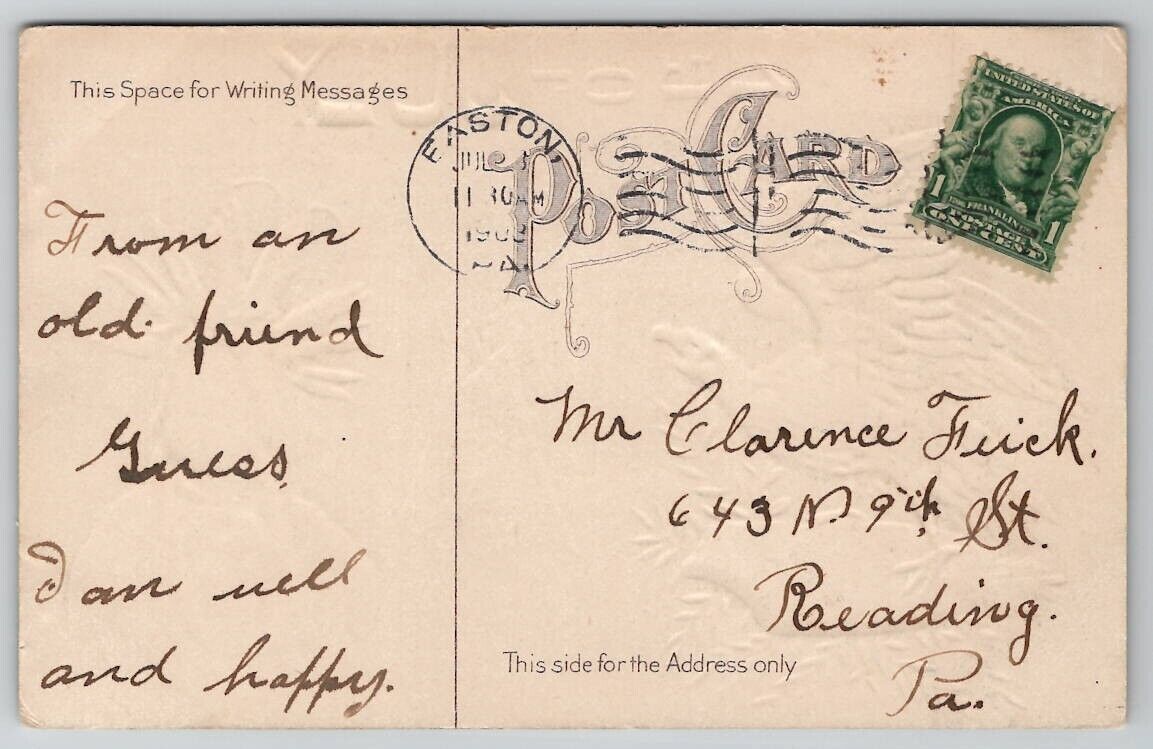 This Space for Writing Messages
From an
old friend
Guess.
I am well
and happy.
EASTON,
JUL
11 30 AM
190
PA
POST CARD
UNITED STATES OF
AMERICA
1 1
FRANKLIN
POSTAGE
ONE CENT
Mr Clarence Feick.
643 N. 9th St.
Reading.
Pa.
This side for the Address only